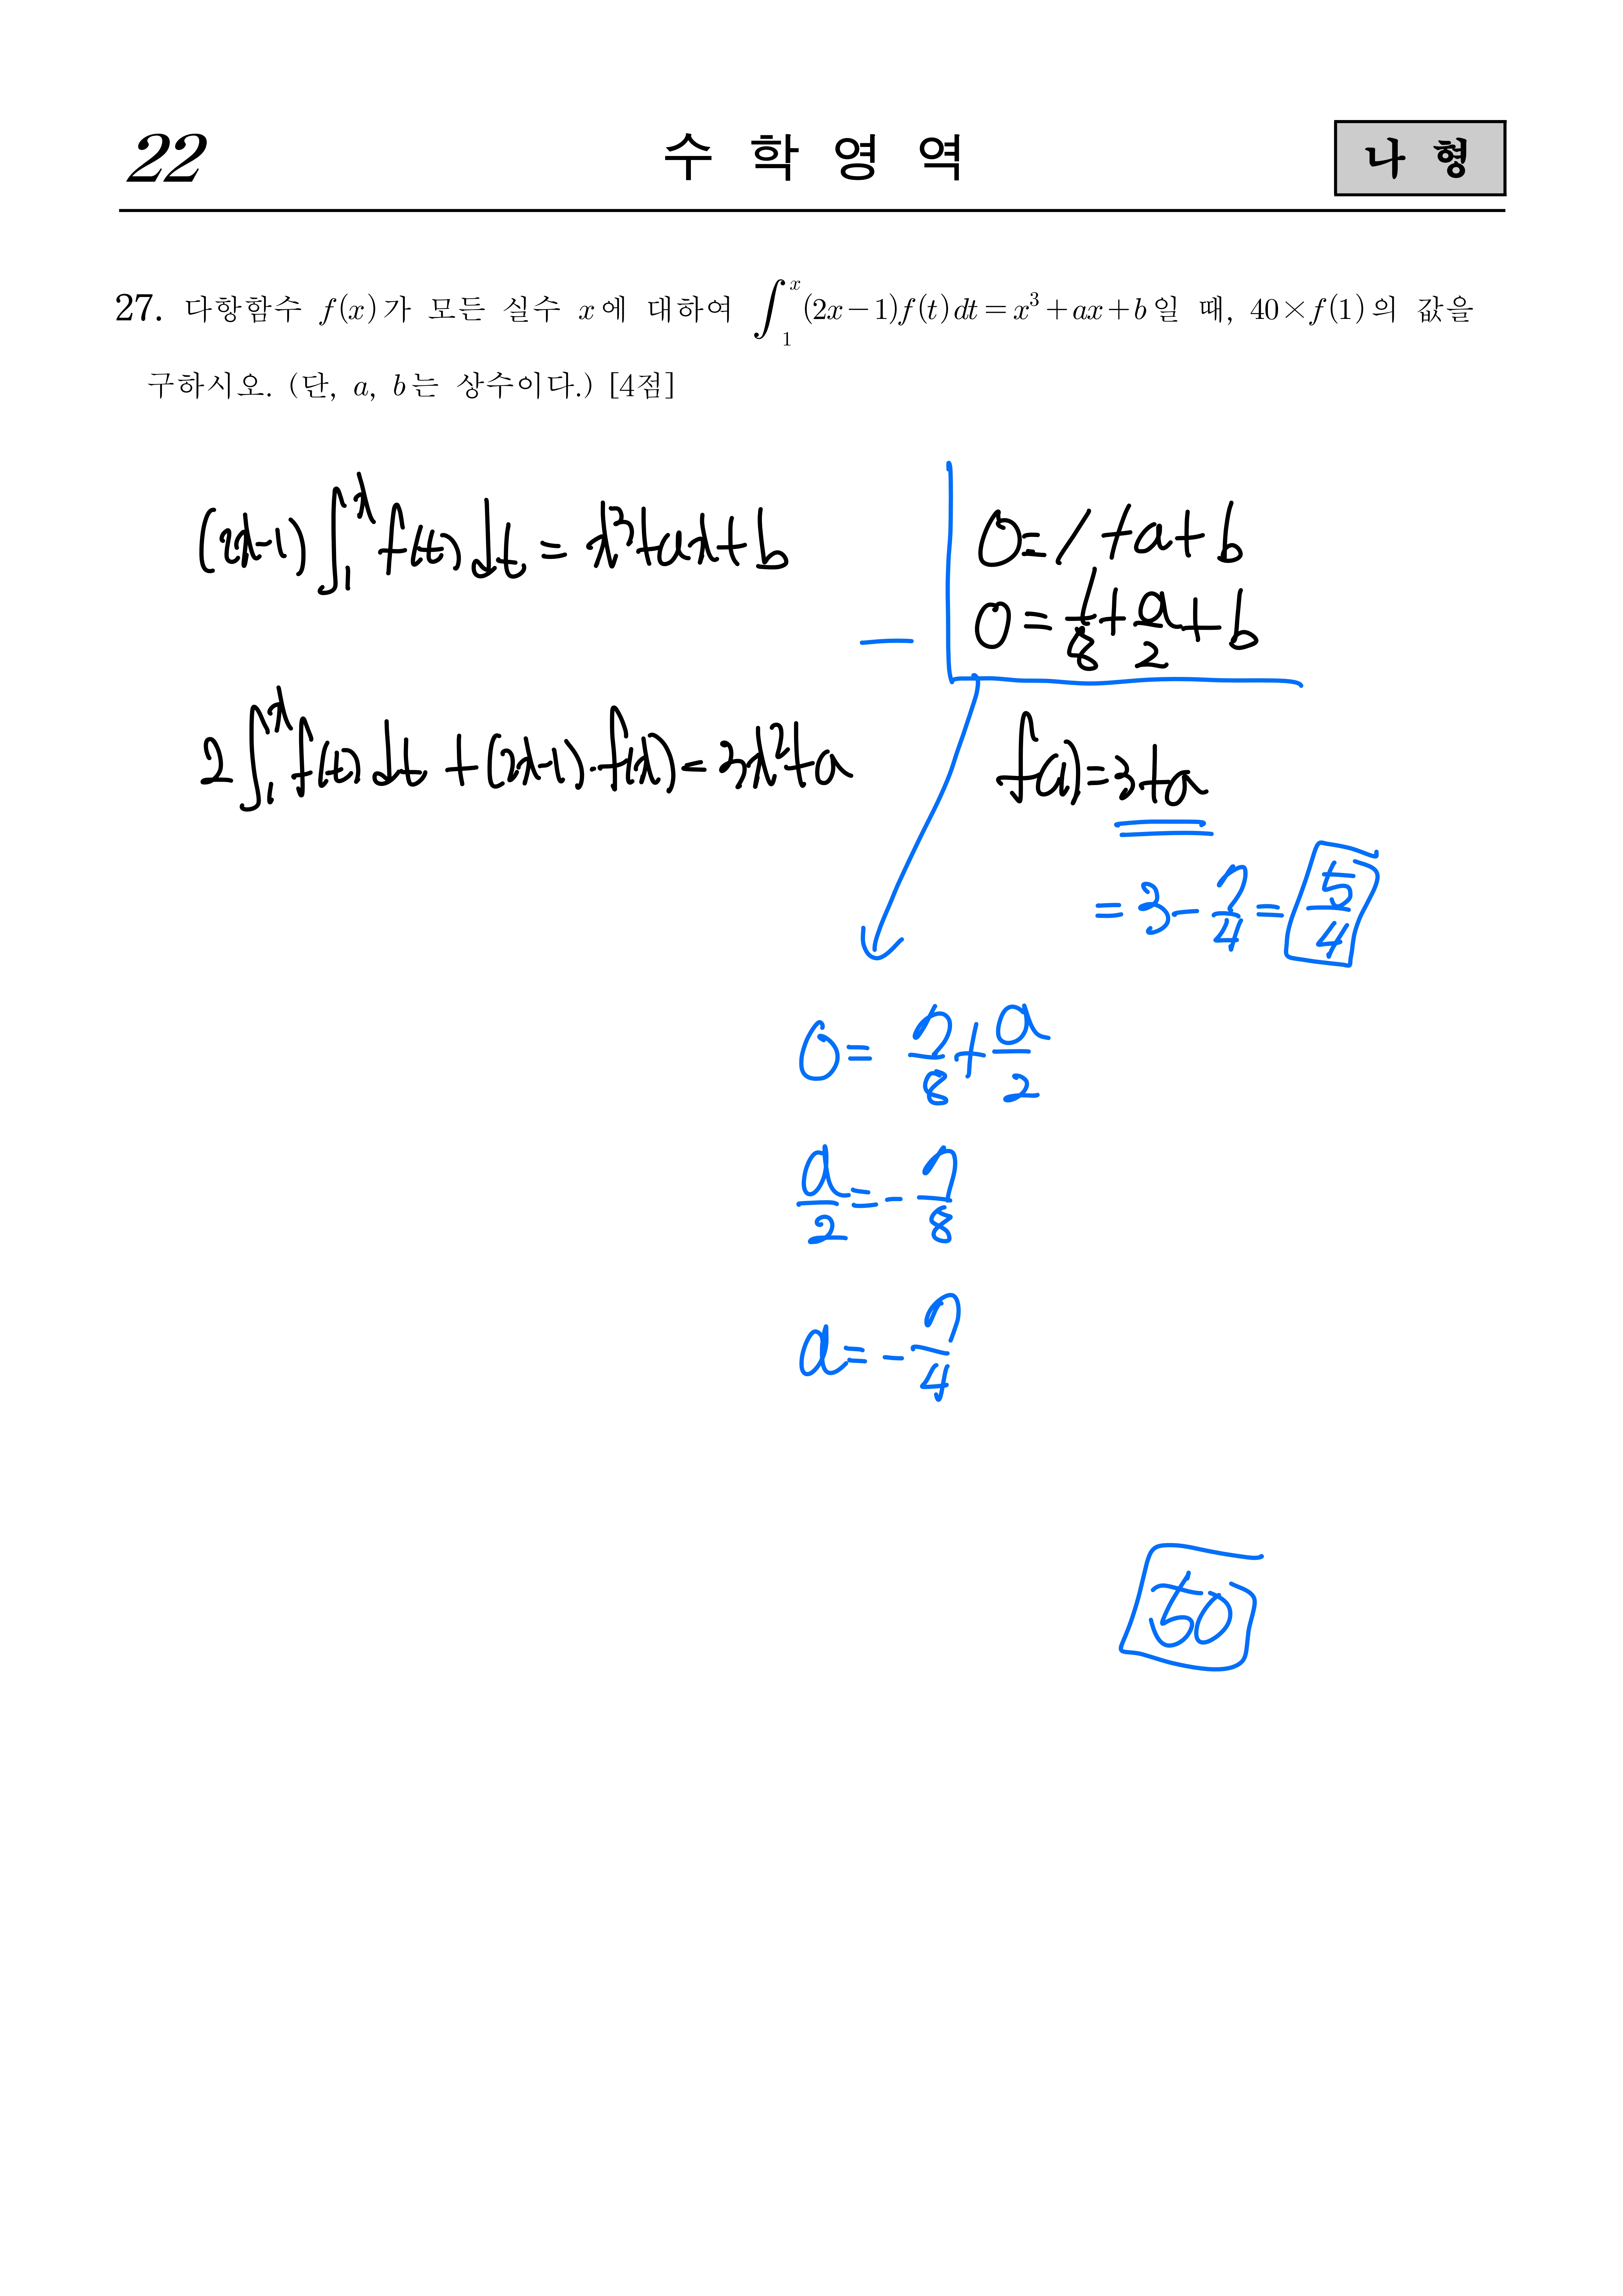 22 수 학 영 역 나 형
27. 다항함수 f(x)가 모든 실수 x에 대하여 ∫₁ˣ(2x−1)f(t)dt=x³+ax+b일 때, 40×f(1)의 값을
구하시오. (단, a, b는 상수이다.) [4점]
(2x-1)∫₁ˣf(t)dt = x³+ax+b
0=1+a+b
0=1/8+a/2+b
−
2∫₁ˣf(t)dt+(2x-1)·f(x)=3x²+a
f(1)=3+a
=3-7/4=5/4
0=7/8+a/2
a/2=-7/8
a=-7/4
50